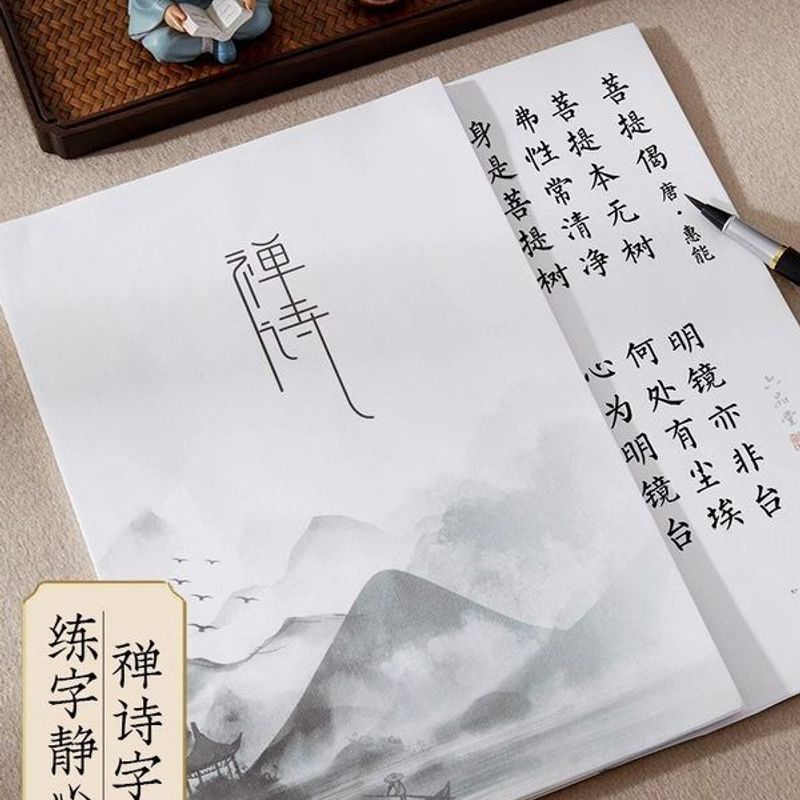 禅诗
菩提偈 唐·惠能
菩提本无树 明镜亦非台
弗性常清净 何处有尘埃
身是菩提树 心为明镜台
六品堂
禅诗字
练字静